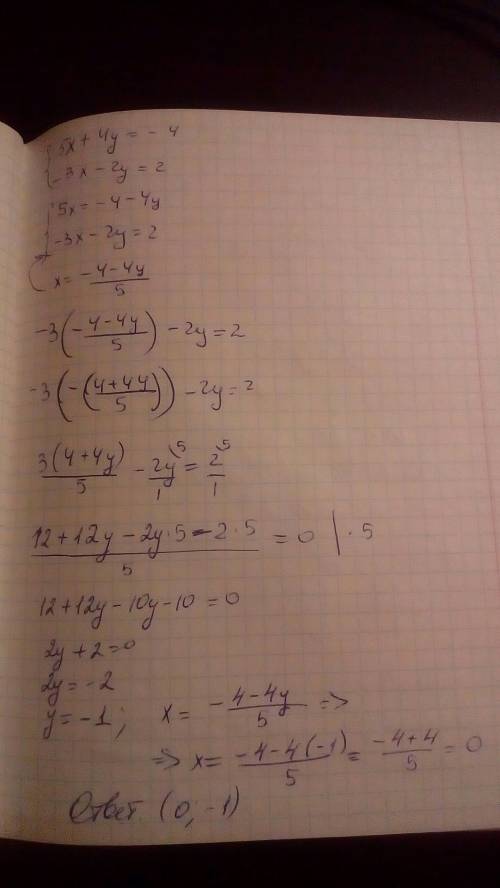 { 5x + 4y = - 4
-3x - 2y = 2
{ 5x = -4 - 4y
-3x - 2y = 2
x = (-4 - 4y)/5
-3(-(4 - 4y)/5) - 2y = 2
-3(-((4 + 4y)/5)) - 2y = 2
3(4 + 4y)/5 - 2y^5/1 = 2^5/1
(12 + 12y - 2y·5 - 2·5)/5 = 0 | · 5
12 + 12y - 10y - 10 = 0
2y + 2 = 0
2y = -2
y = -1; x = (-4 - 4y)/5 =>
=> x = (-4 - 4(-1))/5 = (-4 + 4)/5 = 0
Ответ (0; -1)